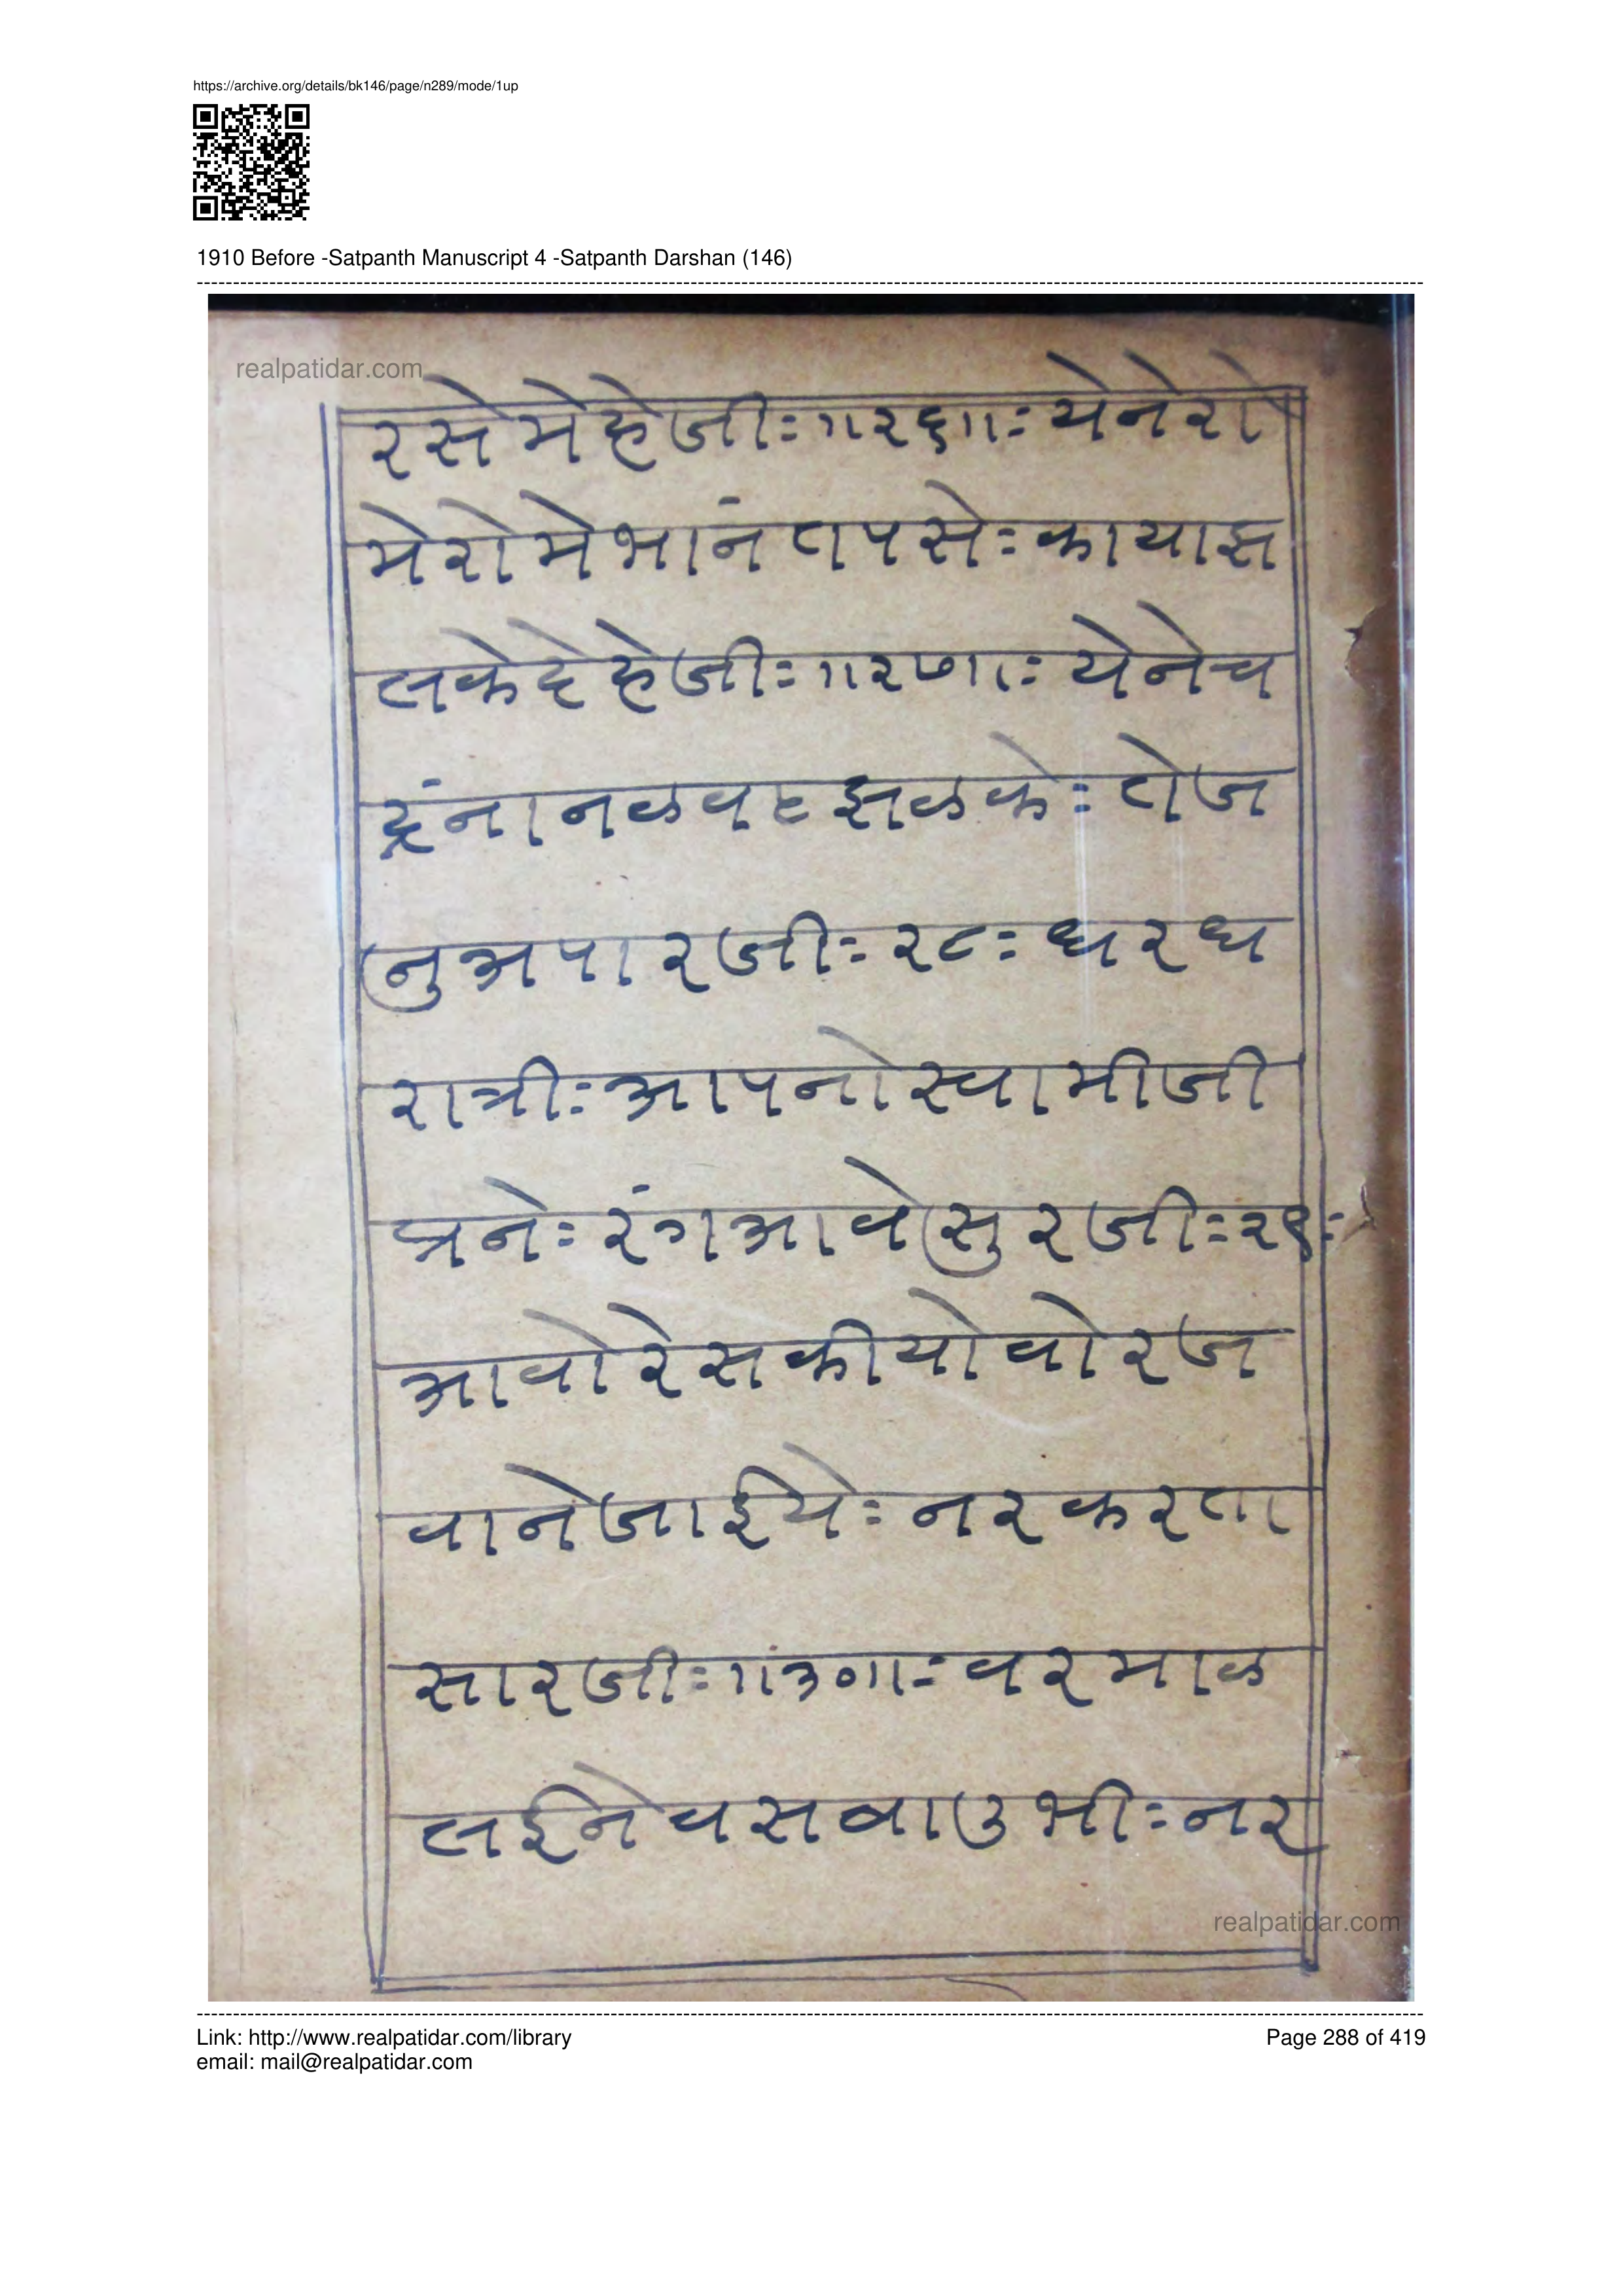 https://archive.org/details/bk146/page/n289/mode/1up
1910 Before -Satpanth Manuscript 4 -Satpanth Darshan (146)
realpatidar.com
रसे मेहे जीः ॥२६॥ः येने रो
मे रोमे भानं तपसेः काया झ
लके देहे जीः ॥२७॥ः येने च
द्रंना नळवट झळकेः तेज
नु अपार जीः २८ः धर ध
रात्रीः आपनो स्वामी जी
त्रनेः रंग आवे सुर जीः २९ः
आवो रे सकीयो वोर ज
वाने जाईयेः नर करता
सार जीः ॥३०॥ः वरमाळ
लईने चसवा उभीः नर
realpatidar.com
Link: http://www.realpatidar.com/library
Page 288 of 419
email: mail@realpatidar.com